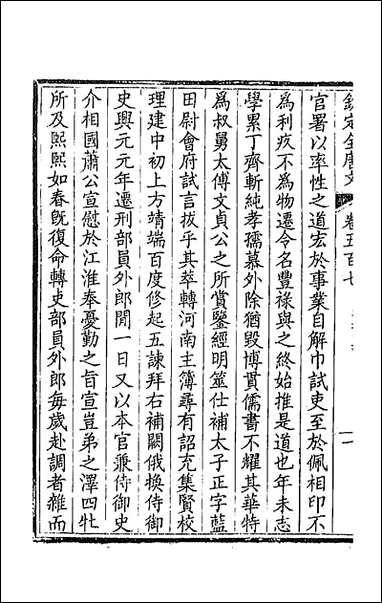 欽定全唐文 卷五百七
官署以率性之道宏於事業自解巾試吏至於佩相印不
為利疚不為物遷令名豐祿與之終始推是道也年未志
學累丁齊斬純孝孺慕外除猶毀博貫儒書不耀其華特
為叔舅太傅文貞公之所賞鑒經明筮仕補太子正字藍
田尉會府試言拔乎其萃轉河南主簿尋有詔充集賢校
理建中初上方靖端百度修起五諫拜右補闕俄換侍御
史興元元年遷刑部員外郎閒一日又以本官兼侍御史
介相國蕭公宣慰於江淮奉憂勤之旨宣豈弟之澤四牡
所及熙熙如春旣復命轉吏部員外郎每歲赴調者雜而